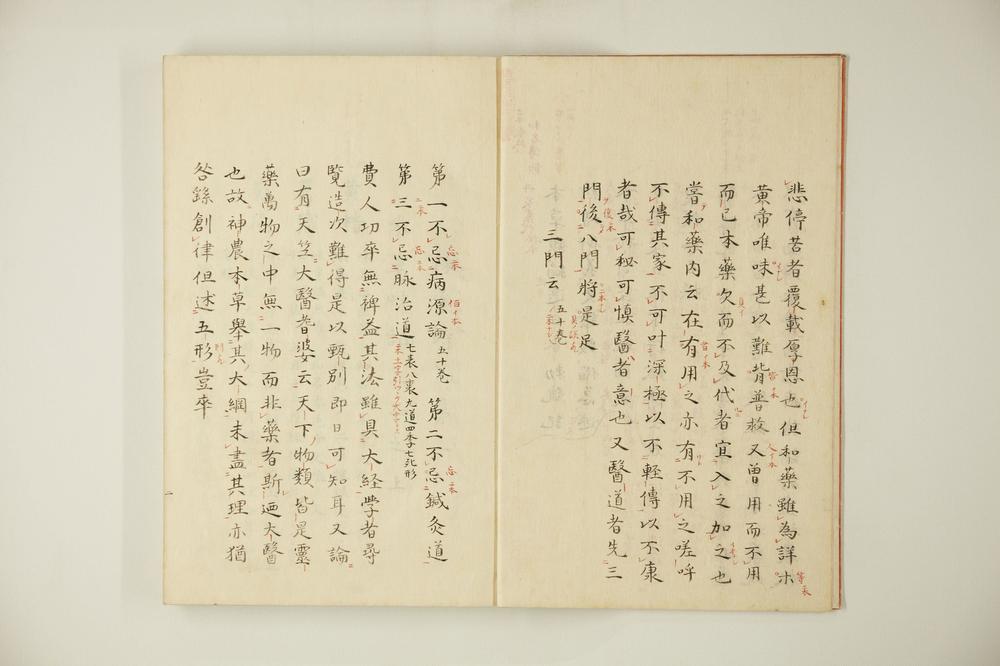 悲停苦者覆載厚恩也但和藥雖為詳朩
黃帝唯味甚以難背普救又曾用而不用
而已本藥欠而不及代者宜入之加之也
嘗和藥内云在有用之亦有不用之嗟呼
不傳其家不可叶深極以不輕傳以不康
者哉可秘可慎醫者意也又醫道者先三
門後八門將是足
三門云 五十巻
第一不忌病源論 五十巻 第二不忌鍼灸道
第三不忌脉治道 七表八裏九道四季七死形
費人功卒無裨益其法雖具大経学者尋
覽造次難得是以甄別即日可知耳又論
曰有天竺大醫耆婆云天下物類皆是靈
藥萬物之中無一物而非藥者斯迺大醫
也故神農本草舉其大綱未盡其理亦猶
咎繇創律但述五形豈卒
二